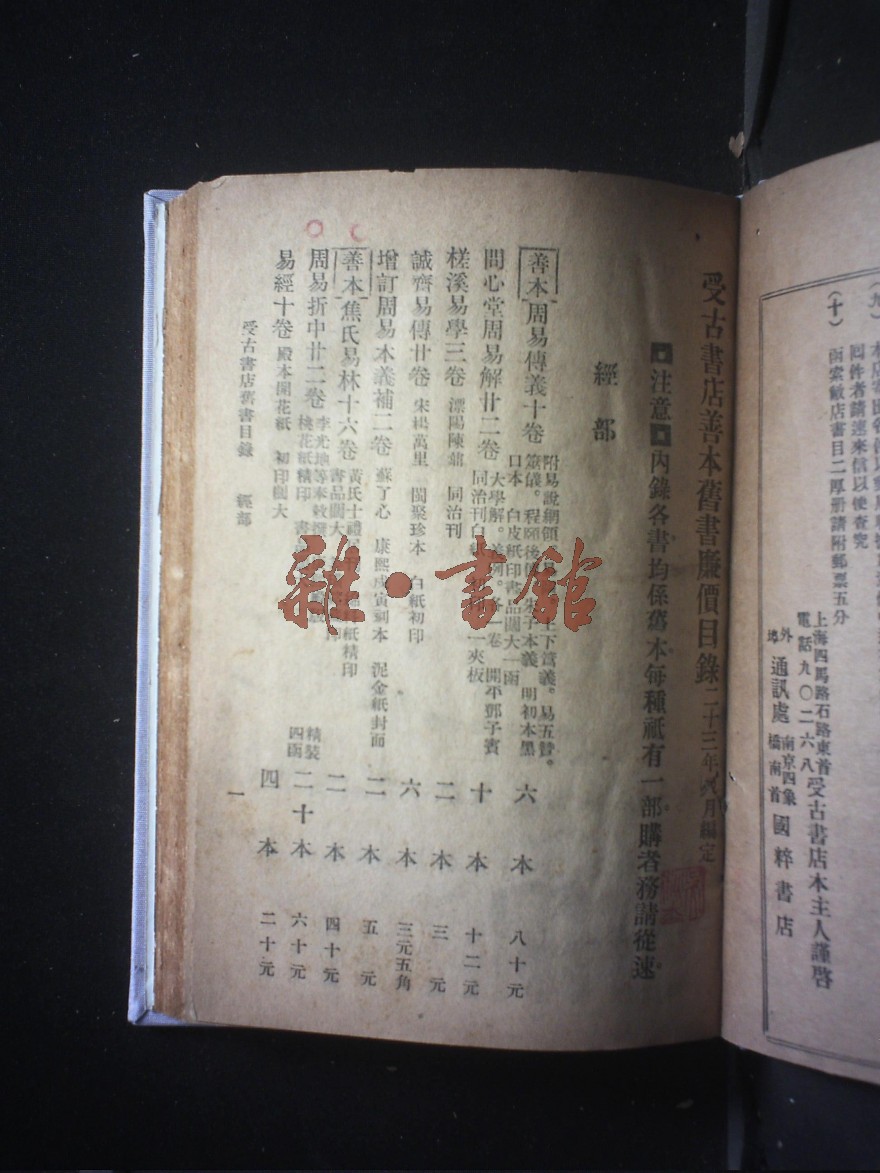 (九)
同件者請速來信以後查究
(十) 函索敝店書目二厚册請附郵票五分
上海四馬路石路東首
電話九〇二六八
受古書店本主人謹啓
外埠
通訊處
南京四象
橋南首
國粹書店
受古書店善本舊書廉價目錄
二十三年
月編定
注意 內錄各書均係舊本每種祇有一部購者務請從速
經部
善本 周易傳義十卷
附易說綱領
上下篇義。易五贊。
筮儀。程頤後傳
朱子本義 明初本黑
口本 白皮紙印書品闊大一函
六本 八十元
問心堂周易解廿二卷
大學解。
各一卷 開平鄧子賓
同治刊白紙
一夾板
十本 十二元
槎溪易學三卷 溧陽陳鼐 同治刊
二本 三元
誠齋易傳廿卷 宋楊萬里 閩聚珍本 白紙初印
六本 三元五角
增訂周易本義補二卷 蘇了心 康熙戊寅刻本 泥金紙封面
二本 五元
善本 焦氏易林十六卷
黃氏士禮居
紙精印
書品闊大
二本 四十元
周易折中廿二卷
李光地等奉敕撰
桃花紙精印
精裝
四函
二十本 六十元
易經十卷 殿本開花紙 初印闊大
四本 二十元
受古書店舊書目錄 經部
一
雜·書館